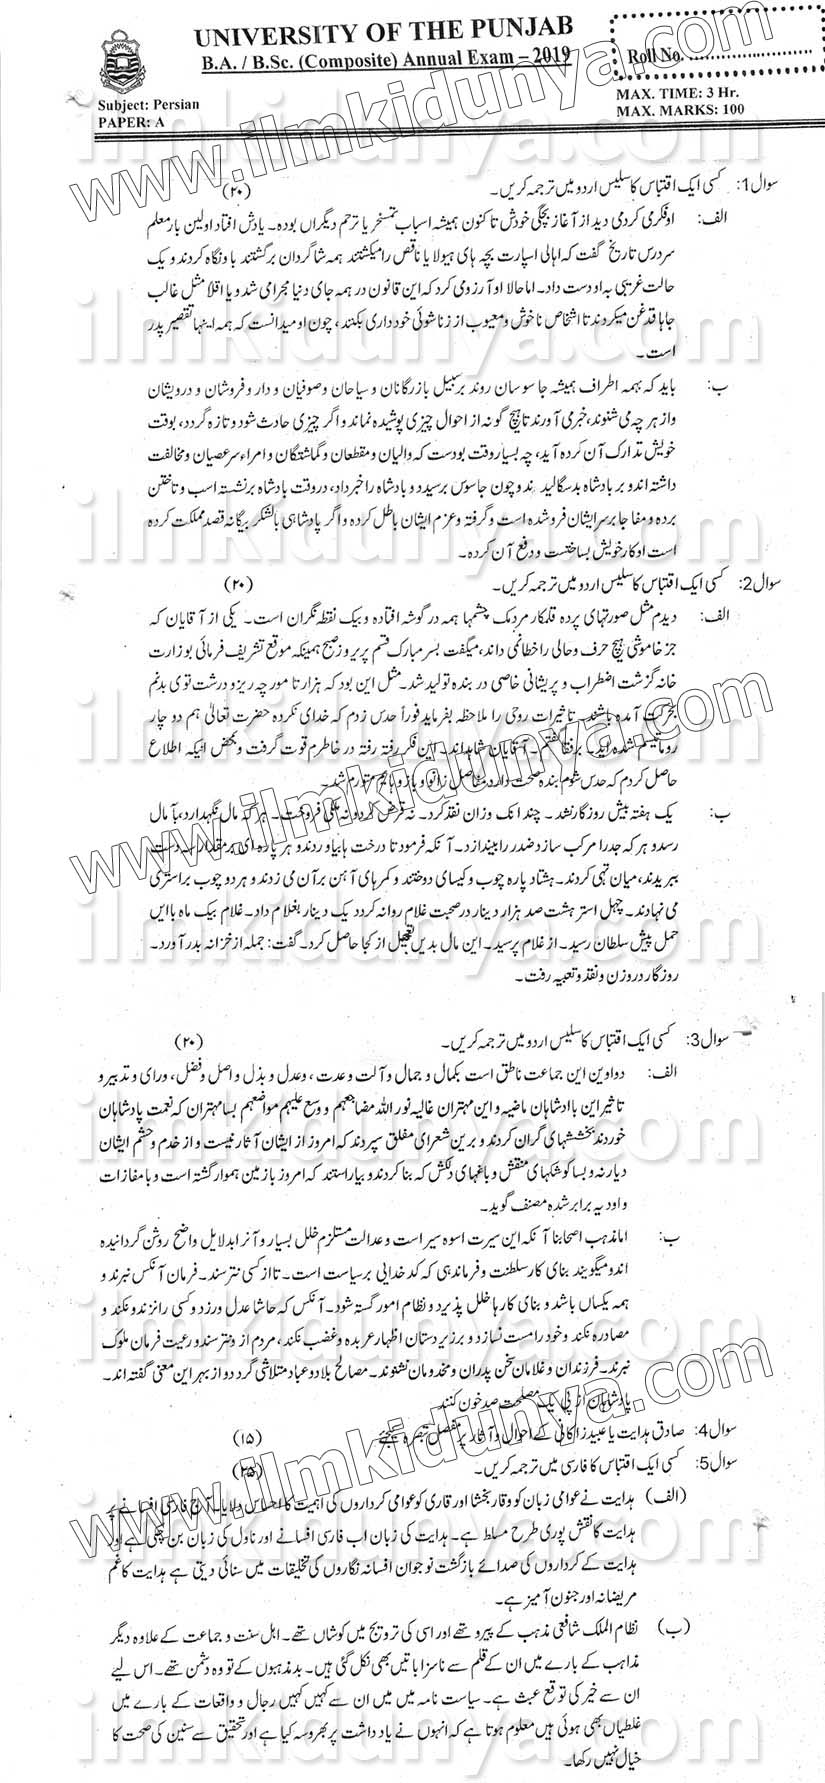 UNIVERSITY OF THE PUNJAB
B.A. / B.Sc. (Composite) Annual Exam – 2019
Roll No. ................................
Subject: Persian
PAPER: A
MAX. TIME: 3 Hr.
MAX. MARKS: 100
سوال 1: کسی ایک اقتباس کا سلیس اردو میں ترجمہ کریں۔ (۲۰)
الف: او فکر می کرد می دید از آغاز بچگی خودش تا کنون ہمیشہ اسباب تمسخر یا ترحم دیگراں بودہ۔ یادش افتاد اولین بار معلم
سر درس تاریخ گفت کہ اہالی اسپارت بچہ ہای ہیولا یا ناقص را میکشتند ہمہ شاگردان برگشتند باو نگاہ کردند و یک
حالت غریبی بہ او دست داد۔ اما حالا او آرزو می کرد کہ این قانون در ہمہ جای دنیا مجرامی شد و یا اقلا مثل غالب
جاہا قدغن میکردند تا اشخاص ناخوش و معیوب از زناشوئی خود داری بکنند، چون او میدانست کہ ہمہ اینہا تقصیر پدر
است۔
ب: باید کہ بہمہ اطراف ہمیشہ جاسوسان روند برسبیل بازرگانان و سیاحان و صوفیان و دارو فروشان و درویشان
و از ہر چہ می شنوند، خبر می آورند تا ہیچ گونہ از احوال چیزی پوشیدہ نماند و اگر چیزی حادث شود و تازہ گردد، بوقت
خویش تدارک آن کردہ آید، چہ بسیار وقت بودست کہ والیان و مقطعان و گماشتگان و امراء سر عصیان و مخالفت
داشتہ اند و بر بادشاہ بد سگالید ند و چون جاسوس برسید و بادشاہ را خبر داد، در وقت بادشاہ برنشستہ اسب و تاختن
بردہ و مفاجا بر سر ایشان فروشدہ است و گرفتہ و عزم ایشان باطل کردہ و اگر پادشاہی بالشکر بیگانہ قصد مملکت کردہ
است او کار خویش بساختست و دفع آن کردہ۔
سوال 2: کسی ایک اقتباس کا سلیس اردو میں ترجمہ کریں۔ (۲۰)
الف: دیدم مثل صورتہای پردہ قلمکار مردمک چشمہا ہمہ در گوشہ افتادہ و بیک نقطہ نگران است۔ یکی از آقایان کہ
جز خاموشی ہیچ حرف و حالی را خطا نمی داند، میگفت بسر مبارک قسم پریروز صبح ہمینکہ موقع تشریف فرمائی بوزارت
خانہ گزشت اضطراب و پریشانی خاصی در بندہ تولید شد۔ مثل این بود کہ ہزار تا مورچہ ریز و درشت توی بدنم
بحرکت آمدہ باشند۔ تاثیرات روحی را ملاحظہ بفرماید فوراً حدس زدم کہ خدای نکردہ حضرت تعالیٰ ہم دو چار
روماتیسم شدہ اید۔ با رفقا گفتم۔ آقایان شاہداند۔ این فکر رفتہ رفتہ در خاطرم قوت گرفت و بمحض اینکہ اطلاع
حاصل کردم کہ حدس شوم بندہ صحت دارد مفاصل زانو و بازو ہایم متورم شد۔
ب: یک ہفتہ بیش روزگار نشد۔ چند انک وزان نقد کرد۔ نہ قرض کرد و نہ ملکی فروخت۔ ہر کہ مال نگہدارد، بآمال
رسد و ہر کہ جد را مرکب سازد ضد را بیندازد۔ آنکہ فرمود تا درخت ہا بیاوردند و ہر پارہ ای بر مقدار سہ دست
ببریدند، میان تہی کردند۔ ہشتاد پارہ چوب و کیسای دوختند و کمر ہای آہن برآن می زدند و ہر دو چوب بر استری
می نہادند۔ چہل استر ہشت صد ہزار دینار در صحبت غلام روانہ کرد و یک دینار بغلام داد۔ غلام بیک ماہ با این
حمل پیش سلطان رسید۔ از غلام پرسید۔ این مال بدین تعجیل از کجا حاصل کرد۔ گفت: جملہ از خزانہ بدر آورد۔
روزگار در وزن و نقد و تعبیہ رفت۔
سوال 3: کسی ایک اقتباس کا سلیس اردو میں ترجمہ کریں۔ (۲۰)
الف: دواوین این جماعت ناطق است بکمال و جمال و آلت و عدت، و عدل و بذل و اصل و فضل، و رای و تدبیر و
تاثیر این بادشاہان ماضیہ و این مہتران غالیہ نور اللہ مضاجعہم و وسع علیہم مواضعہم بسا مہتران کہ نعمت پادشاہان
خوردند بخششہای گران کردند و برین شعرای مفلق سپردند کہ امروز از ایشان آثار نیست و از خدم و حشم ایشان
دیار نہ و بسا کوشکہای منقش و باغہای دلکش کہ بنا کردند و بیاراستند کہ امروز با زمین ہموار گشتہ است و با مفازات
و اودیہ برابر شدہ مصنف گوید۔
ب: اما مذہب اصحابنا آنکہ این سیرت اسوہ سیر است و عدالت مستلزم خلل بسیار و آنرا بدلایل واضح روشن گردانیدہ
اند و میگویند بنای کار سلطنت و فرماندہی کہ کدخدایی بر سیاست است۔ تا از کسی نترسند۔ فرمان آنکس نبرند و
ہمہ یکساں باشد و بنای کارہا خلل پذیرد و نظام امور گستہ شود۔ آنکس کہ حاشا عدل ورزد و کسی را نزند و نکند و
مصادرہ نکند و خود را مست نسازد و بر زیر دستان اظہار عربدہ و غضب نکند، مردم از و نترسند و رعیت فرمان ملوک
نبرند۔ فرزندان و غلامان سخن پدران و مخدومان نشنوند۔ مصالح بلاد و عباد متلاشی گردد و از بہر این معنی گفتہ اند۔
پادشاہان از پی یک مصلحت صد خون کنند
سوال 4: صادق ہدایت یا عبید زاکانی کے احوال و آثار پر مفصل تبصرہ کیجئے (۱۵)
سوال 5: کسی ایک اقتباس کا فارسی میں ترجمہ کریں۔ (۲۵)
(الف) ہدایت نے عوامی زبان کو وقار بخشا اور قاری کو عوامی کرداروں کی اہمیت کا احساس دلایا۔ آج فارسی افسانے پر
ہدایت کا نقش پوری طرح مسلط ہے۔ ہدایت کی زبان اب فارسی افسانے اور ناول کی زبان بن چکی ہے اور
ہدایت کے کرداروں کی صدائے بازگشت نوجوان افسانہ نگاروں کی تخلیقات میں سنائی دیتی ہے ہدایت کا غم
مریضانہ اور جنون آمیز ہے۔
(ب) نظام الملک شافعی مذہب کے پیرو تھے اور اسی کی ترویج میں کوشاں تھے۔ اہل سنت و جماعت کے علاوہ دیگر
مذاہب کے بارے میں ان کے قلم سے ناسزا باتیں بھی نکل گئی ہیں۔ بد مذہبوں کے تو وہ دشمن تھے۔ اس لیے
ان سے خیر کی توقع عبث ہے۔ سیاست نامہ میں میں ان سے کہیں کہیں رجال و واقعات کے بارے میں
غلطیاں بھی ہوئی ہیں معلوم ہوتا ہے کہ انہوں نے یادداشت پر بھروسہ کیا ہے اور تحقیق سے سنین کی صحت کا
خیال نہیں رکھا۔
www.ilmkidunya.com